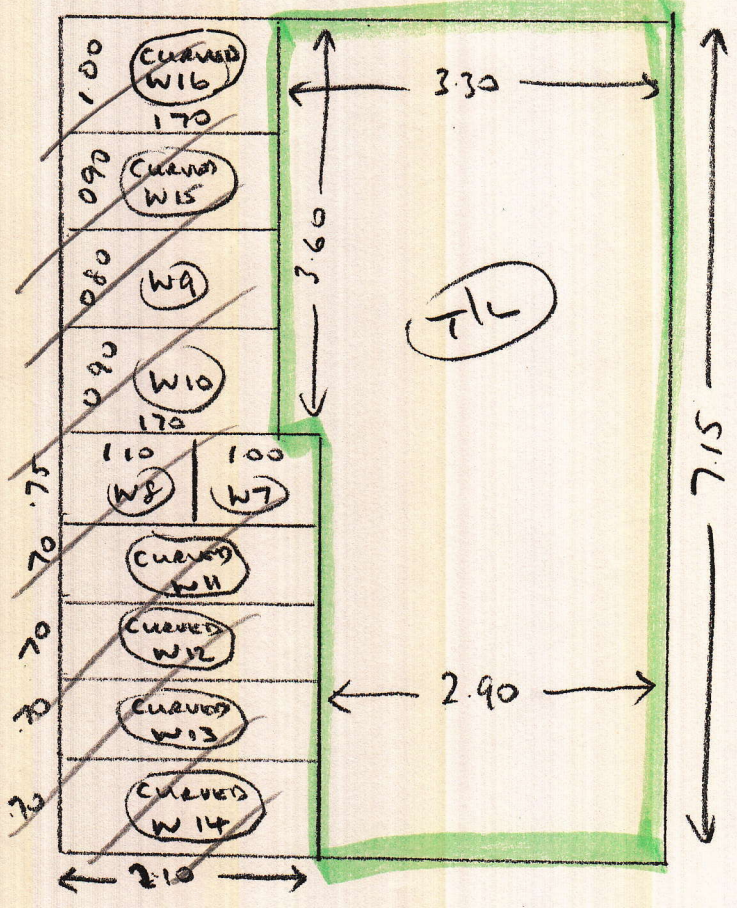 1.00
CURVED
W16
170
090
CURVED
W15
080
W9
090
W10
170
.75
110
W8
1.00
W7
70
CURVED
W11
70
CURVED
W12
.70
CURVED
W13
.70
CURVED
W14
2.10
3.30
3.60
T/L
2.90
7.15